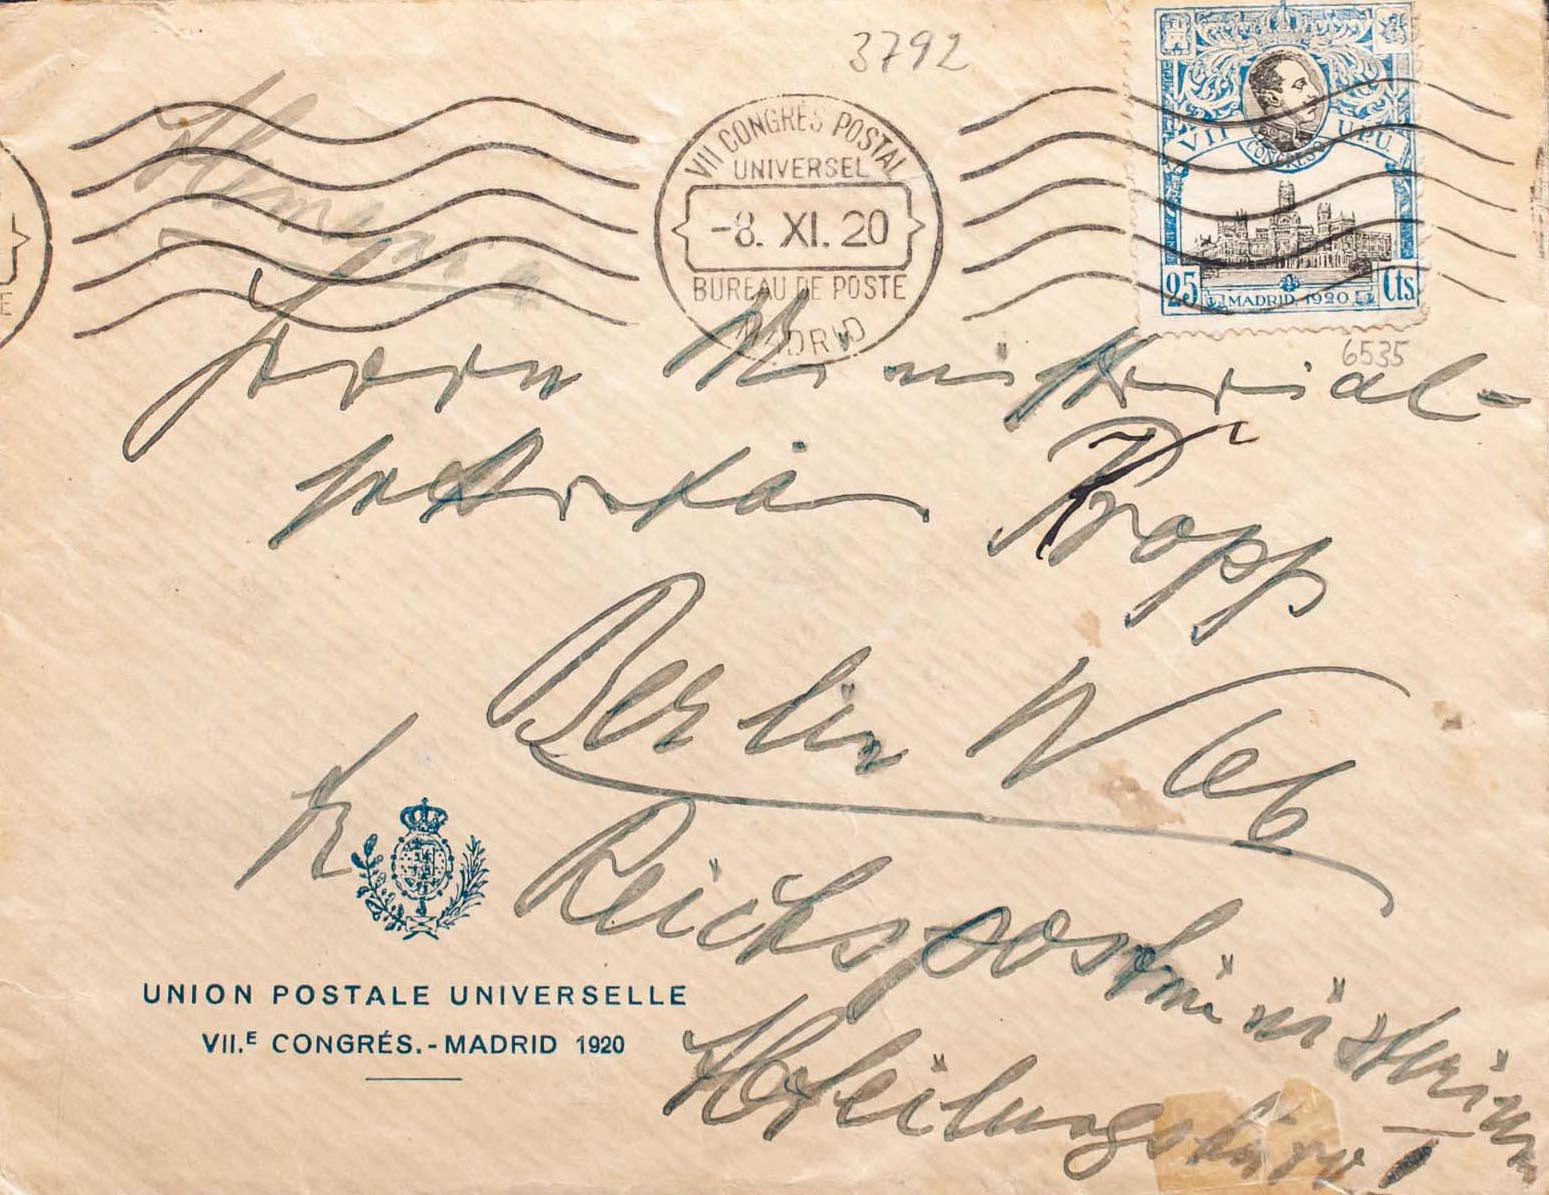 3792
VII CONGRÉS POSTAL
UNIVERSEL
-8. XI. 20
BUREAU DE POSTE
MADRID
VII CONGRESO U.P.U.
25 Cts
MADRID 1920
6535
Herrn Ministerial-
sekretär Kropp
Berlin W
Reichspostministerium
Abteilung
UNION POSTALE UNIVERSELLE
VII.E CONGRÉS.-MADRID 1920